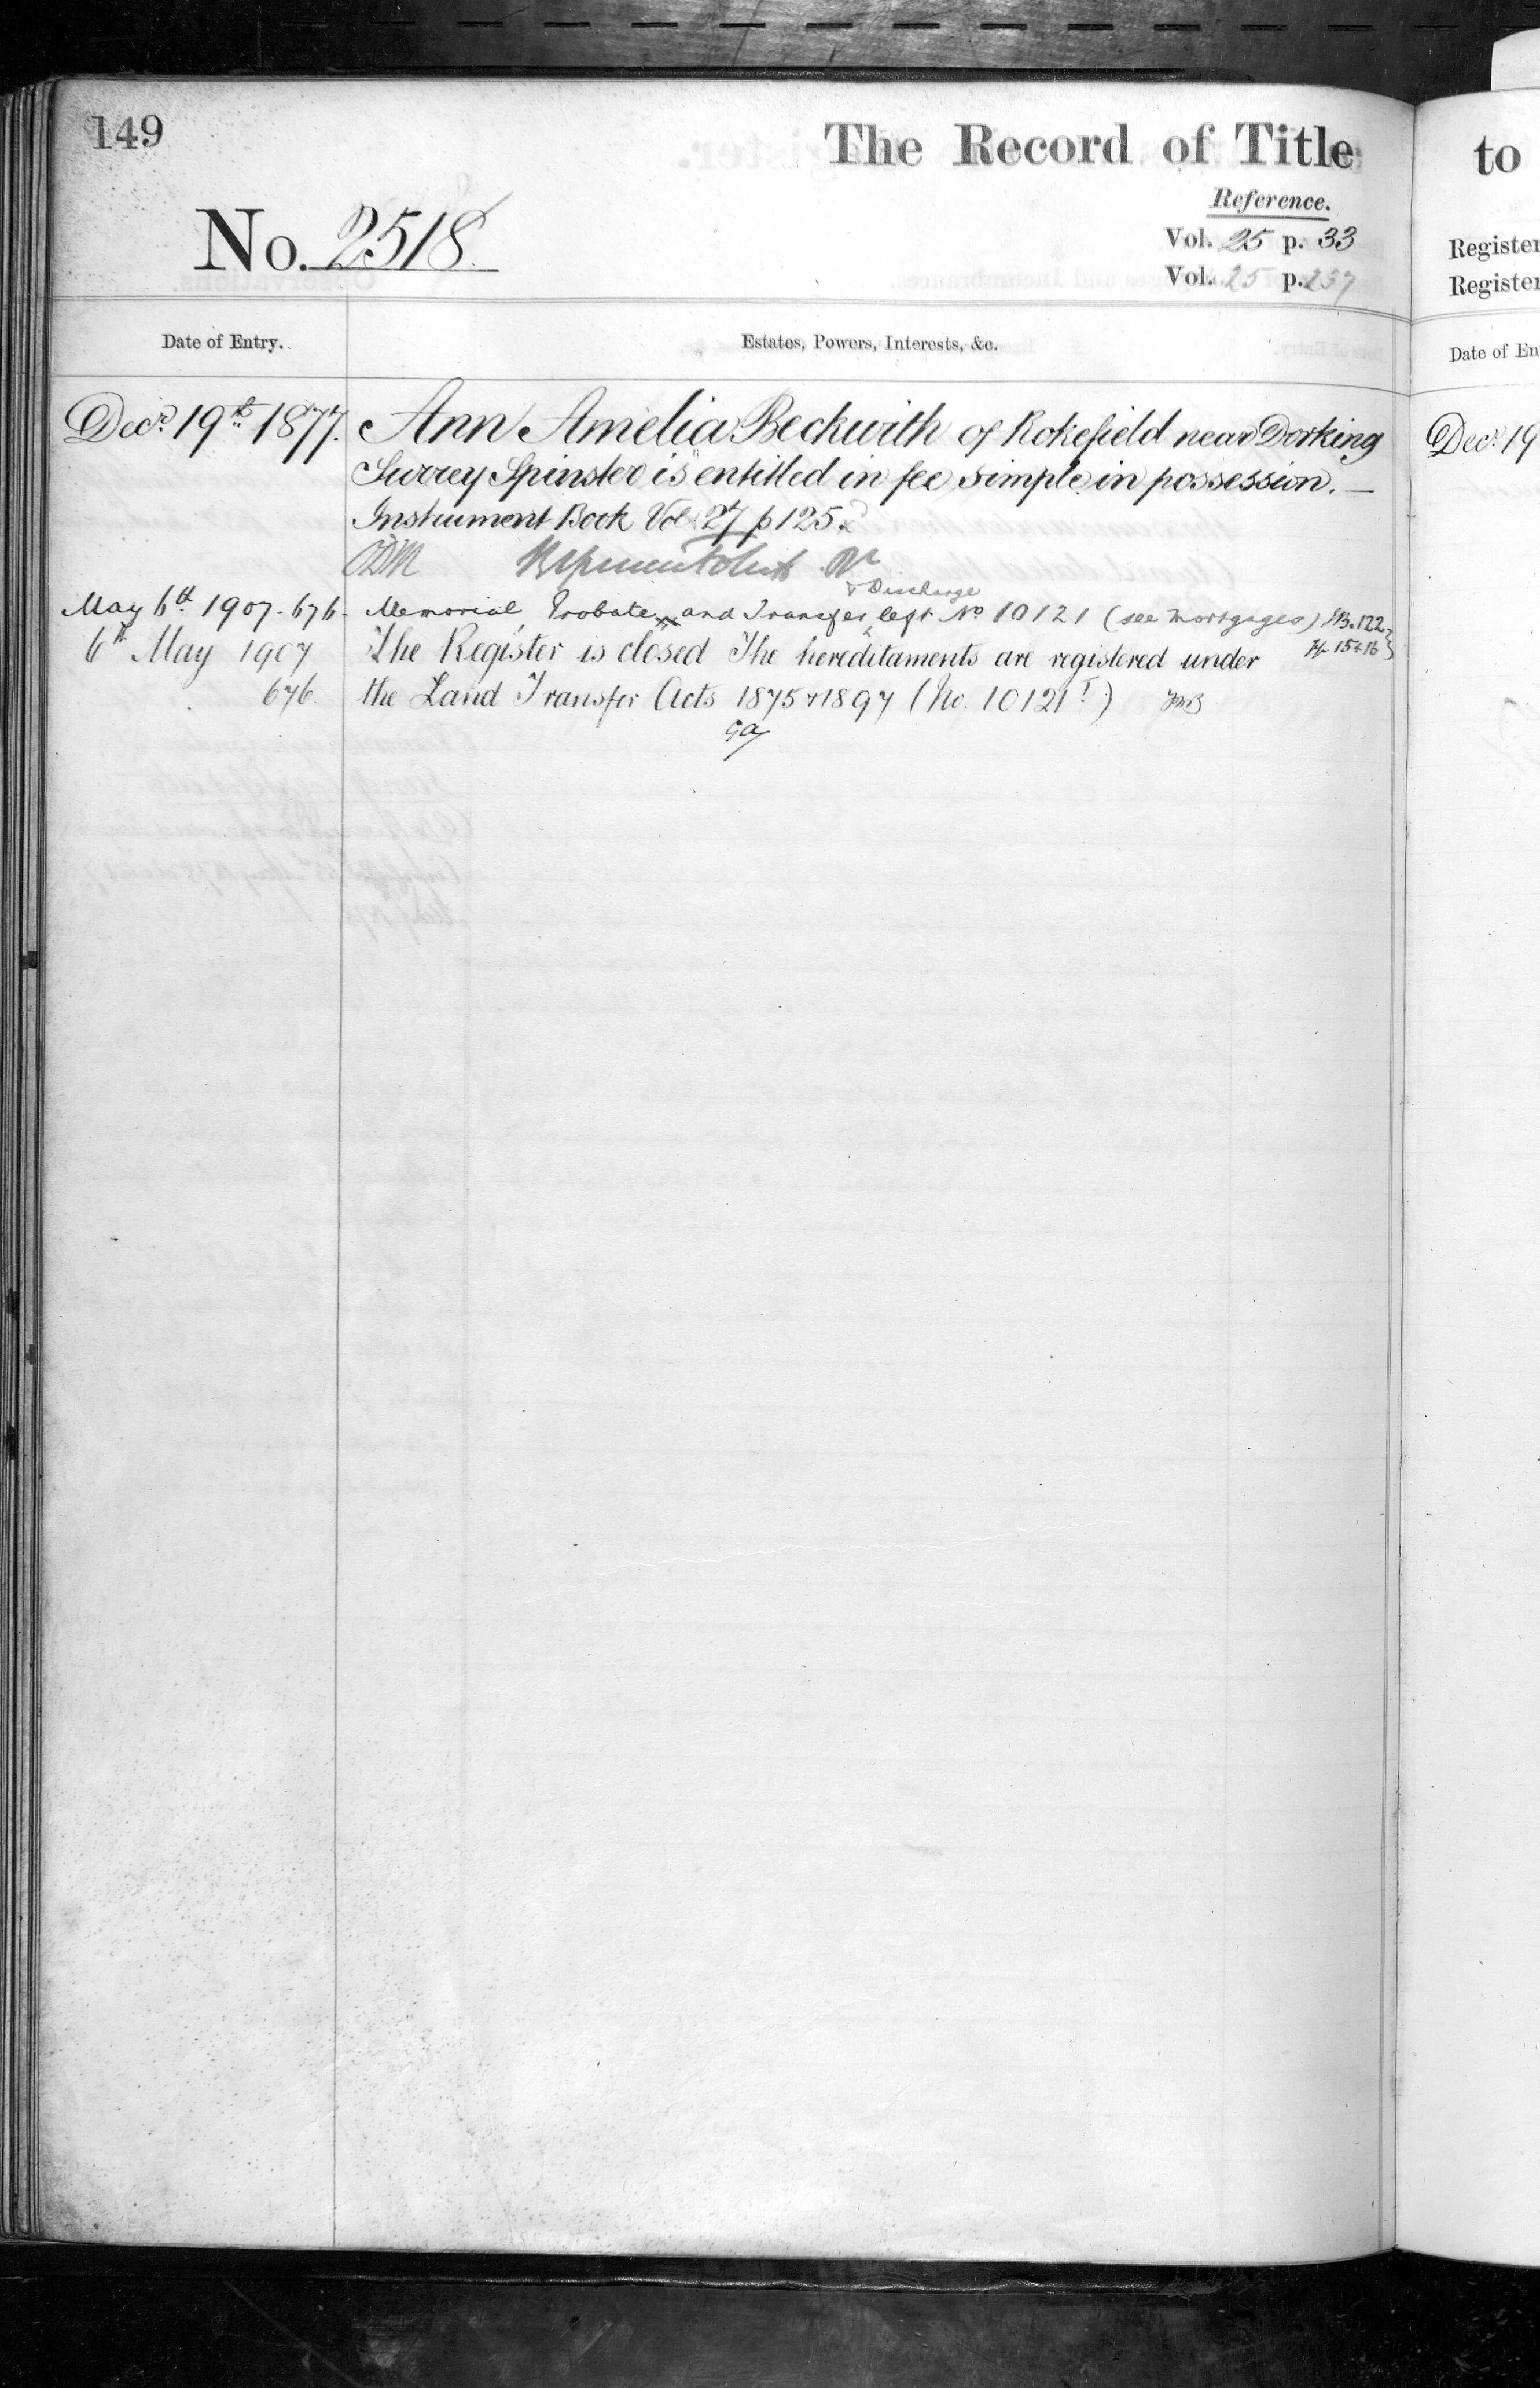 149
The Record of Title
Reference.
No. 2518
Vol. 25 p. 33
Vol. 25 p. 237
Date of Entry.
Estates, Powers, Interests, &c.
Decr. 19th 1877.
Ann Amelia Beckwith of Rokefield near Dorking
Surrey Spinster is entitled in fee simple in possession. —
Instrument Book Vol 27 p 125.
& Discharge
May 6th 1907. 676.
Memorial, Probate and Transfer left No 10121 (see Mortgages)
6th May 1907
The Register is closed The hereditaments are registered under
676.
the Land Transfer Acts 1875 & 1897 (No. 10121
to
Register
Register
Date of En
Decr. 19